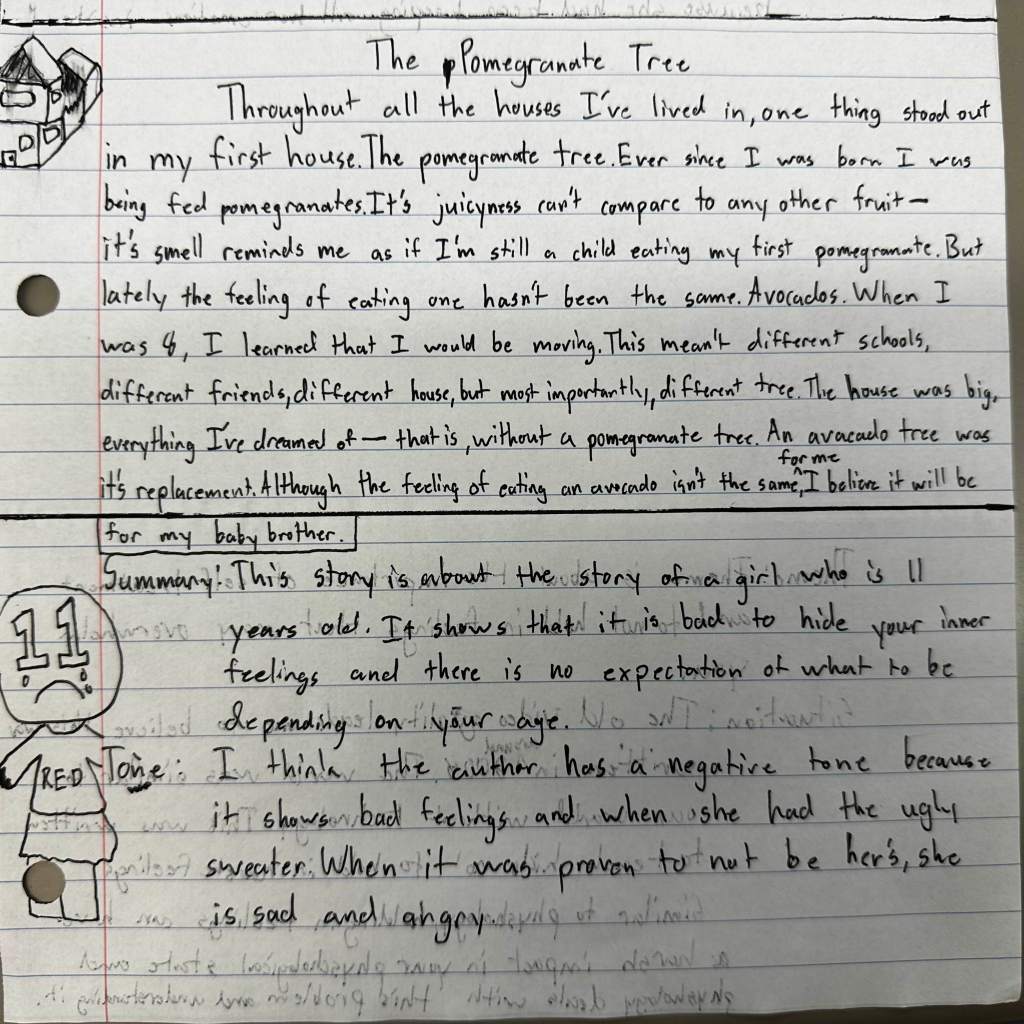 The Pomegranate Tree
Throughout all the houses I've lived in, one thing stood out
in my first house. The pomegranate tree. Ever since I was born I was
being fed pomegranates. It's juicyness can't compare to any other fruit—
it's smell reminds me as if I'm still a child eating my first pomegranate. But
lately the feeling of eating one hasn't been the same. Avocados. When I
was 8, I learned that I would be moving. This mean't different schools,
different friends, different house, but most importantly, different tree. The house was big,
everything I've dreamed of — that is, without a pomegranate tree. An avacado tree was
for me
it's replacement. Although the feeling of eating an avocado isn't the same, I believe it will be
for my baby brother.
Summary: This story is about the story of a girl who is 11
years old. It shows that it is bad to hide your inner
feelings and there is no expectation of what to be
depending on your age.
11
RED
Tone: I think the author has a negative tone because
it shows bad feelings and when she had the ugly
sweater. When it was proven to not be her's, she
is sad and angry.